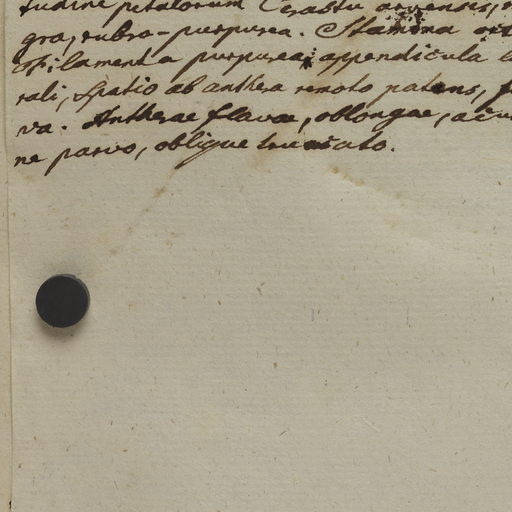 tudine petalorum Cerastii arvensis,
gra, rubro-purpurea. Stamina
Filamenta purpurea; appendicula
rali, spatio ab anthera remoto patens,
va. Antherae flavae, oblongae,
ne parvo, oblique truncato.